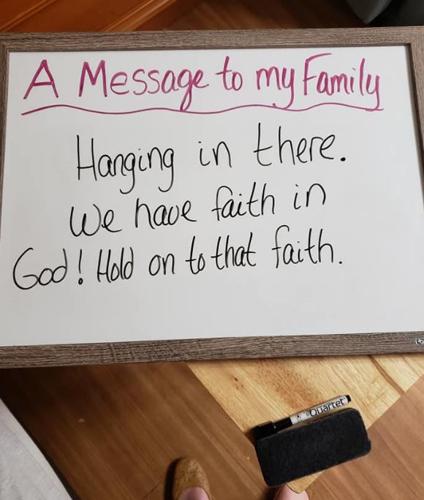 A Message to my Family
Hanging in there.
We have faith in
God! Hold on to that faith.
Quartet